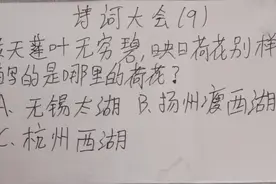 诗词大会(9)
天莲叶无穷碧,映日荷花别样
写的是哪里的荷花?
A. 无锡太湖 B. 扬州瘦西湖
C. 杭州西湖